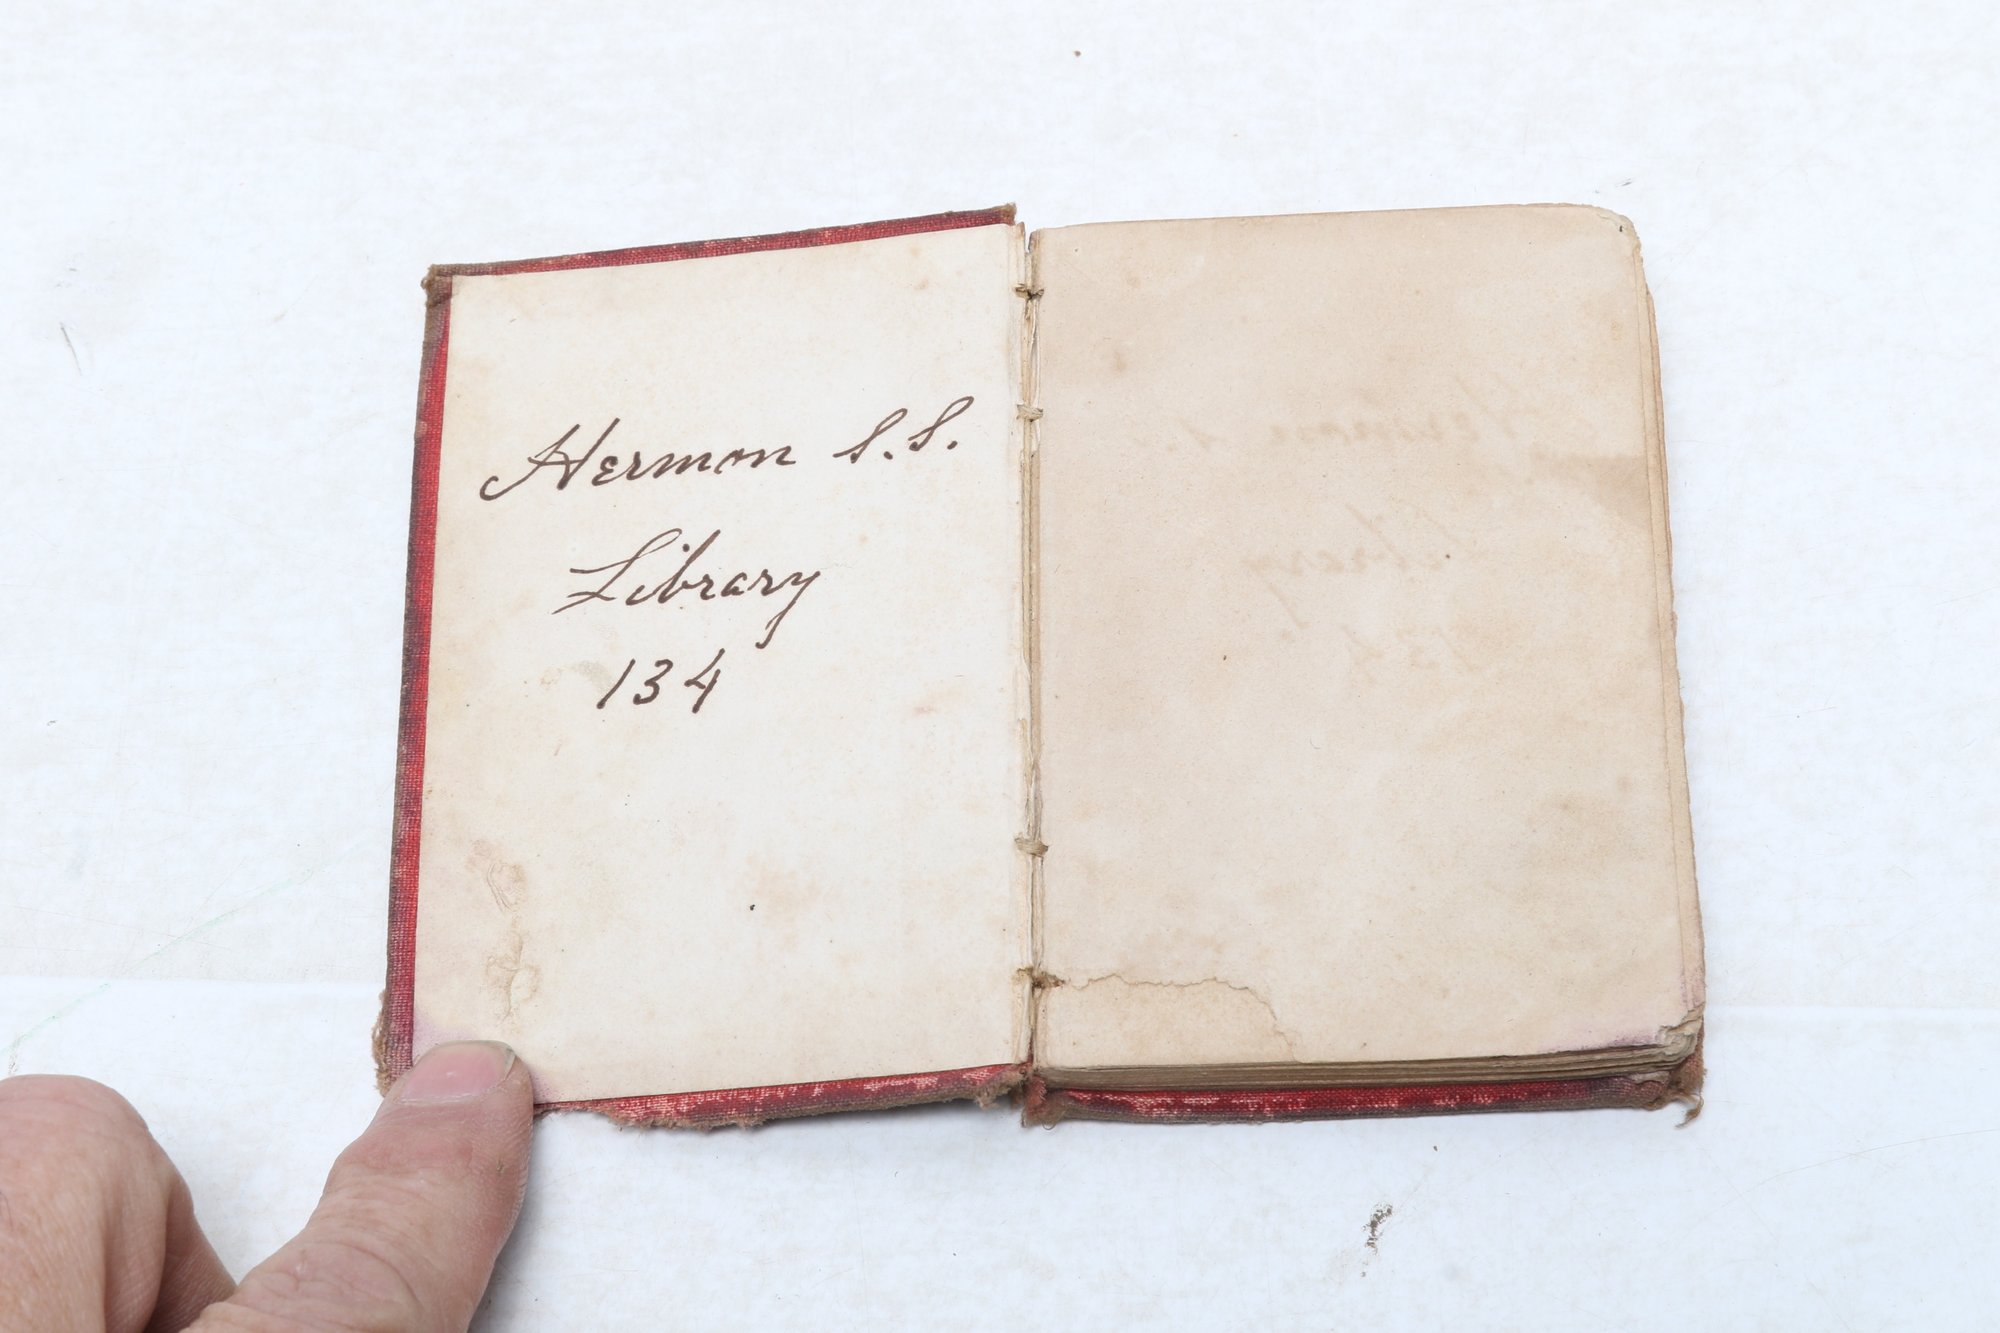 Hermon S.S.
Library
134